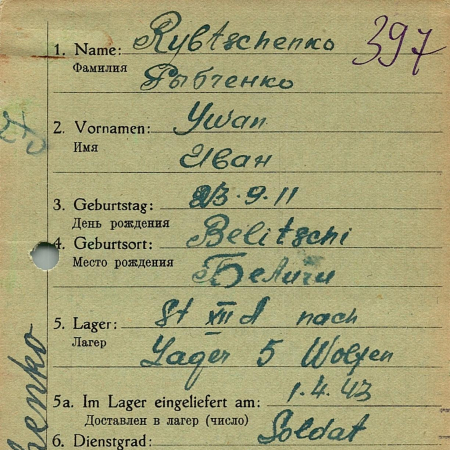 1. Name: Rybtschenko 397
Фамилия Рыбченко
2. Vornamen: Ywan
Имя Иван
3. Geburtstag: 23.9.11
День рождения
4. Geburtsort: Belitschi
Место рождения Беличи
5. Lager: St XII A nach
Лагер Lager 5 Wolfen
5a. Im Lager eingeliefert am: 1.4.43
Доставлен в лагер (число)
6. Dienstgrad: Soldat
henko